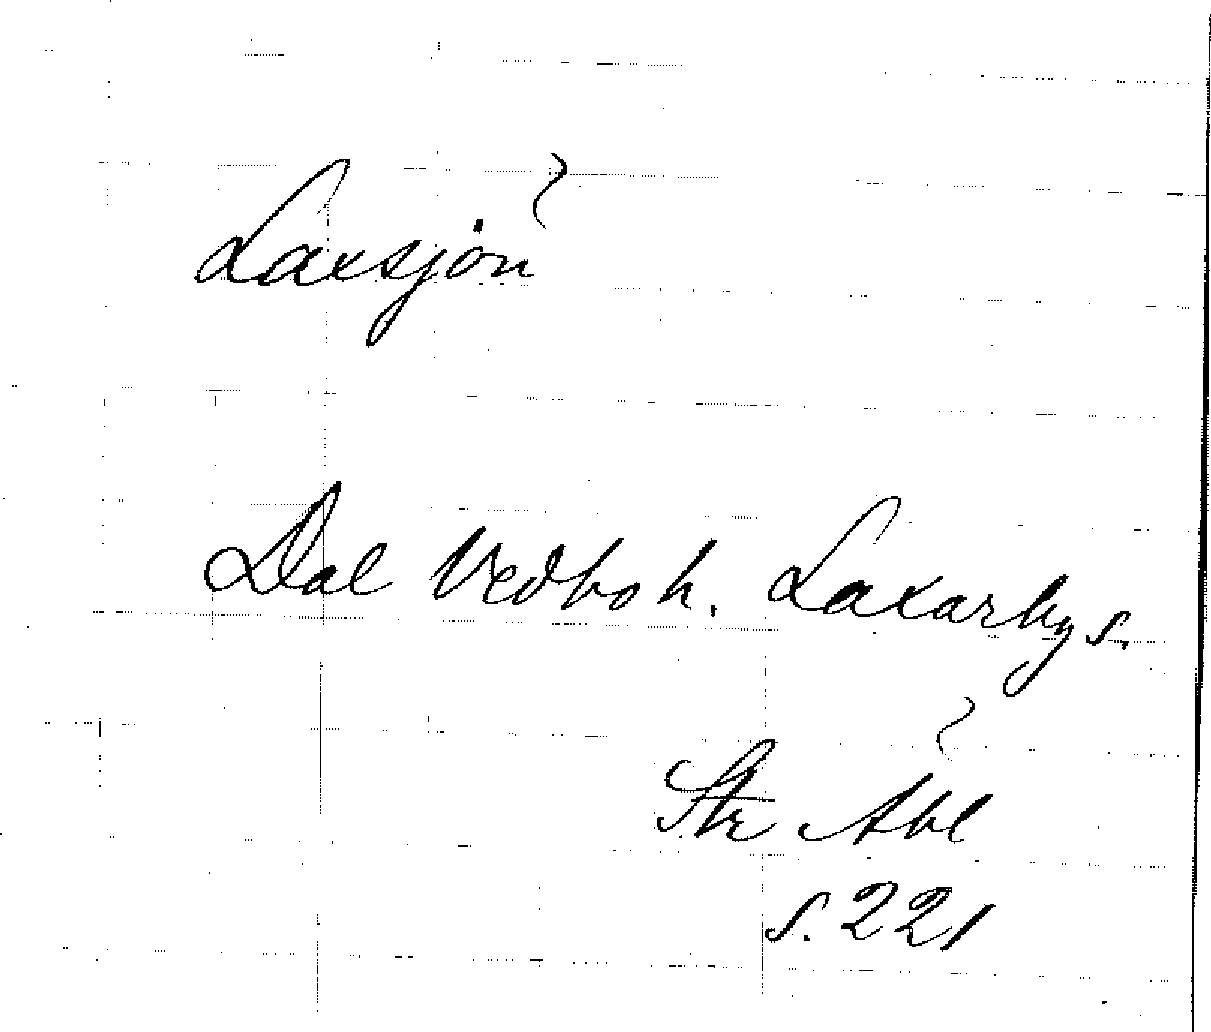 Laxsjön
Dal Vedbo h. Laxarby s.
Str Åbl
s. 221